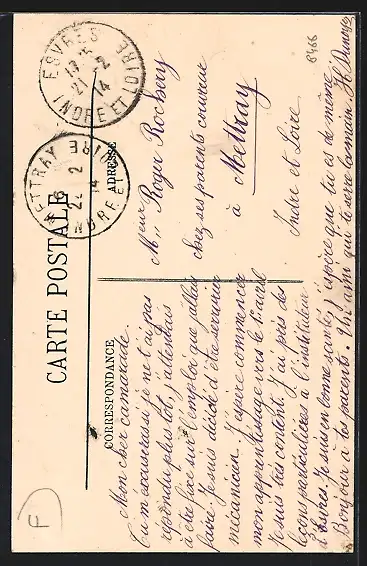 CARTE POSTALE
CORRESPONDANCE
ADRESSE
Mon cher camarade.
Tu m'excuseras si je ne t'ai pas
répondu plus tôt, j'attendais
à être fixé sur l'emploi que j'allais
faire. Je suis décidé d'être serrurier
mécanicien. J'espère commencer
mon apprentissage vers le 1er avril
Je suis très content. J'ai pris des
leçons particulières à l'instituteur
d'Esvres. Je suis en bonne santé, j'espère que tu es de même
Bonjour à tes parents. Un ami qui te serre la main. H.
Roger Rochery
chez ses parents couvreur
à Mettray
Indre et Loire
ESVRES
21 - 2
14
INDRE ET LOIRE
METTRAY
22 2
14
INDRE ET LOIRE
8466
F